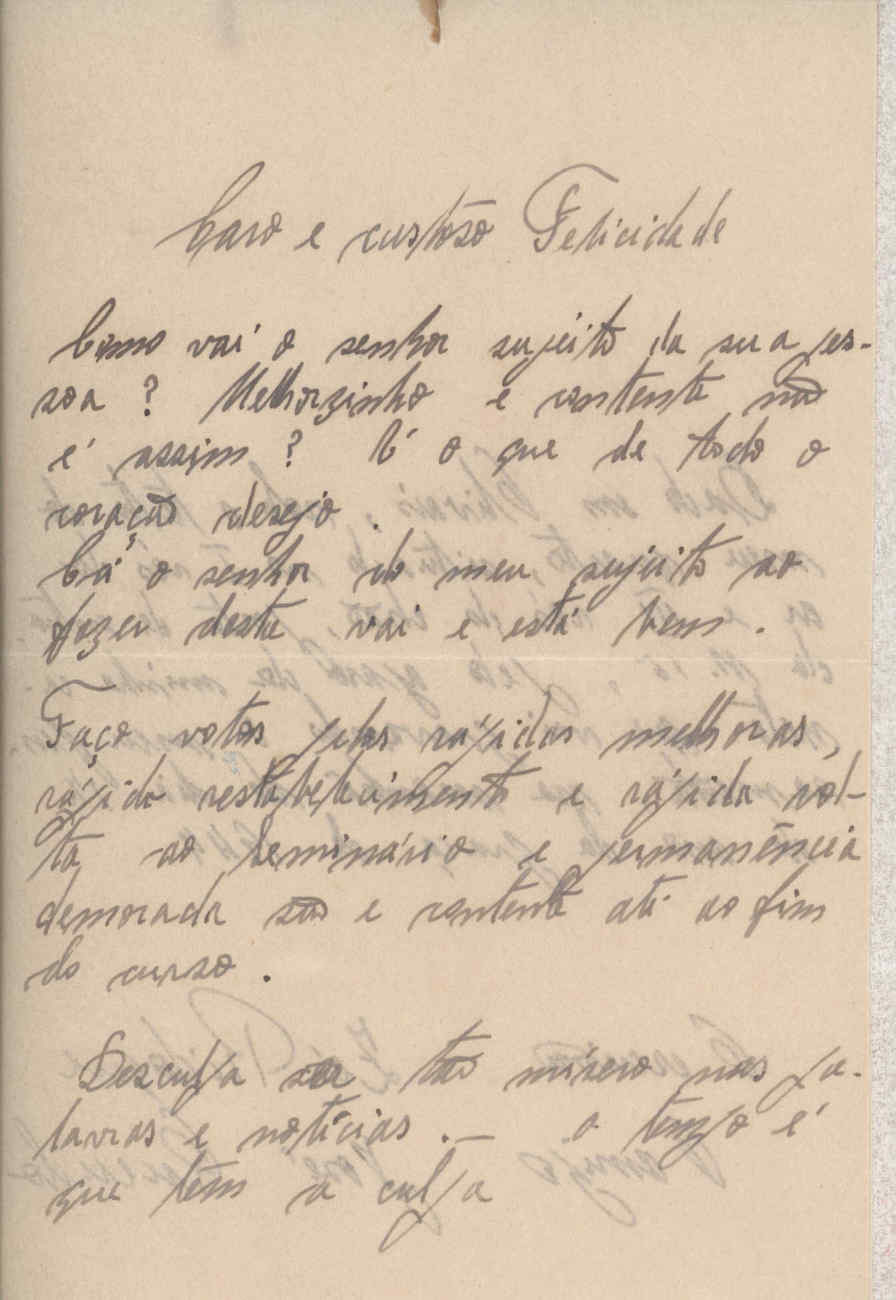 Caro e custôso Felicidade
Como vai o senhor sujeito da sua pes-
soa? Melhorzinho e contente não
é assim? É o que de todo o
coração desejo.
Cá o senhor do meu sujeito ao
fazer deste vai e está bem.
Faço votos pelas rápidas melhoras,
rápido restabelecimento e rápida vol-
ta ao Seminário e permanência
demorada são e contente até ao fim
do curso.
Desculpa ser tão mísero nas pa-
lavras e notícias. — o tempo é
que têm a culpa